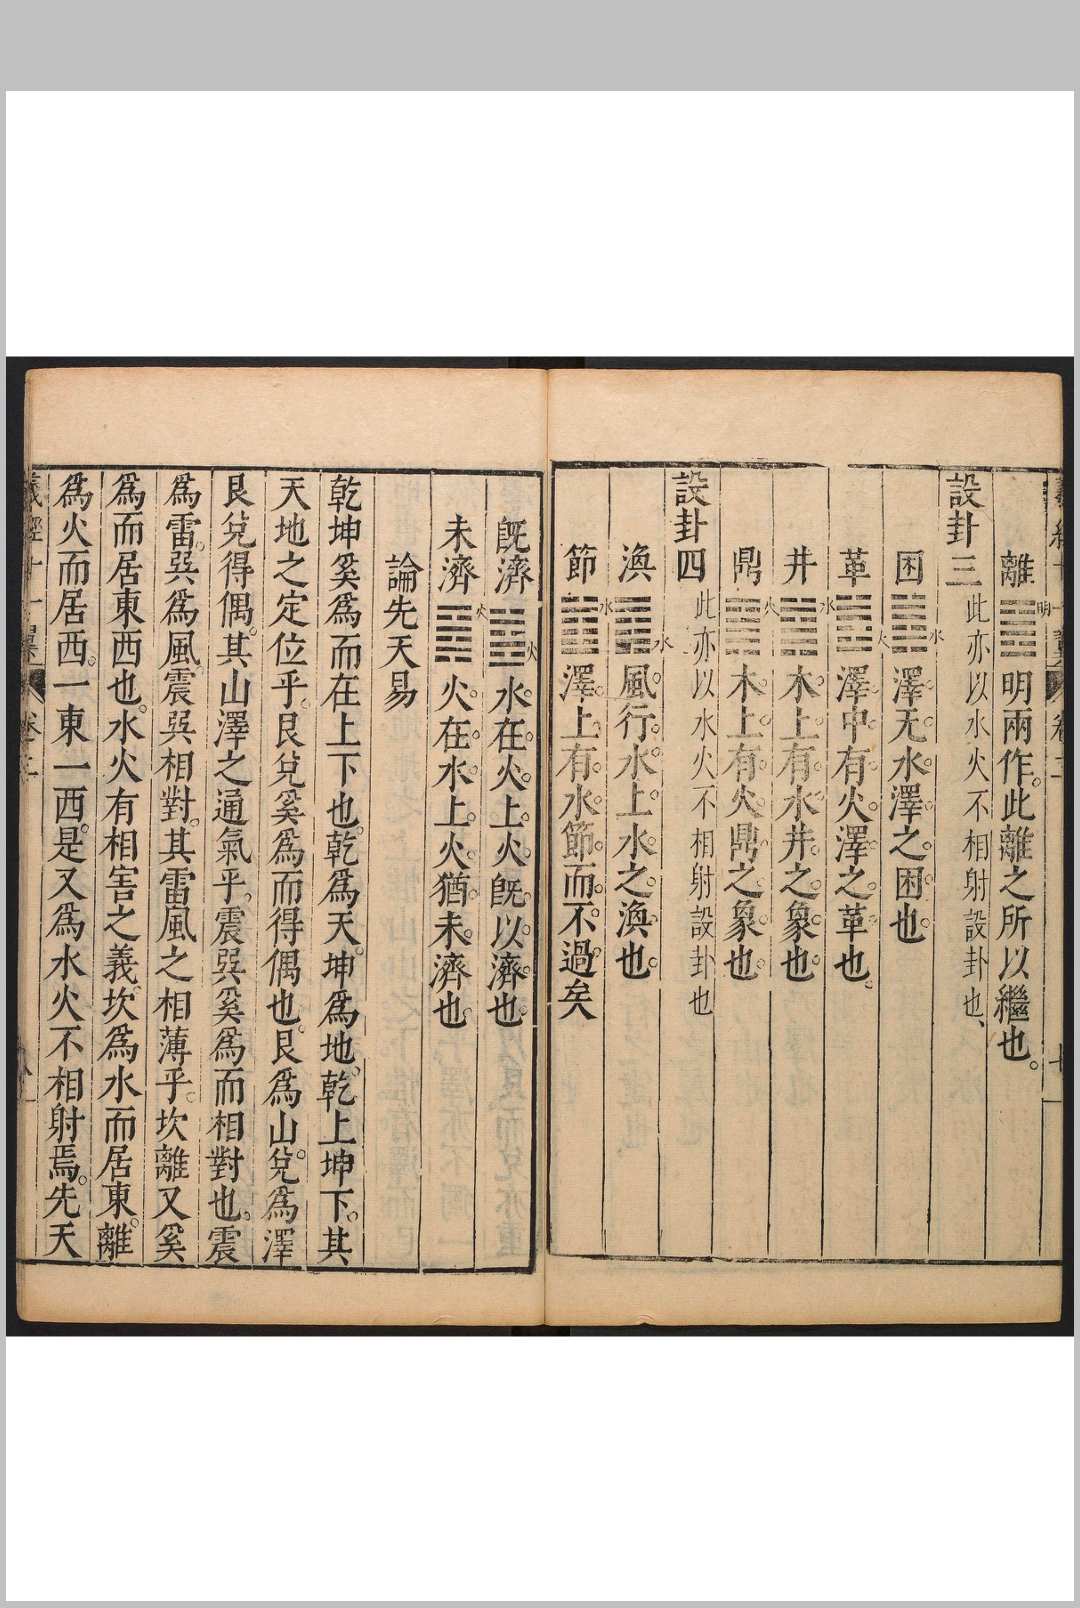 離䷝明明兩作此離之所以繼也
設卦三此亦以水火不相射設卦也
困䷮水澤无水澤之困也
革䷰火澤中有火澤之革也
井䷯水木上有水井之象也
鼎䷱火木上有火鼎之象也
設卦四此亦以水火不相射設卦也
渙䷺水風行水上水之渙也
節䷻水澤上有水節而不過矣
既濟䷾火水在火上火既以濟也
未濟䷿火火在水上火猶未濟也
論先天易
乾坤奚爲而在上下也乾爲天坤爲地乾上坤下其
天地之定位乎艮兌奚爲而得偶也艮爲山兌爲澤
艮兌得偶其山澤之通氣乎震巽奚爲而相對也震
爲雷巽爲風震巽相對其雷風之相薄乎坎離又奚
爲而居東西也水火有相害之義坎爲水而居東離
爲火而居西一東一西是又爲水火不相射焉先天